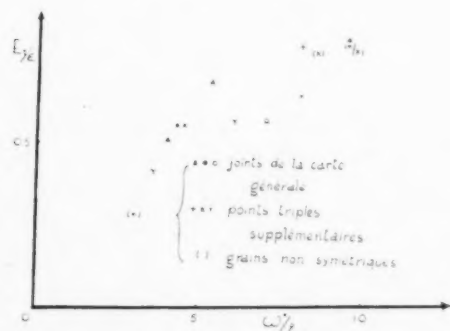 0.5
joints de la carte
générale
points triples
supplémentaires
( ) grains non symetriques
0 5 10